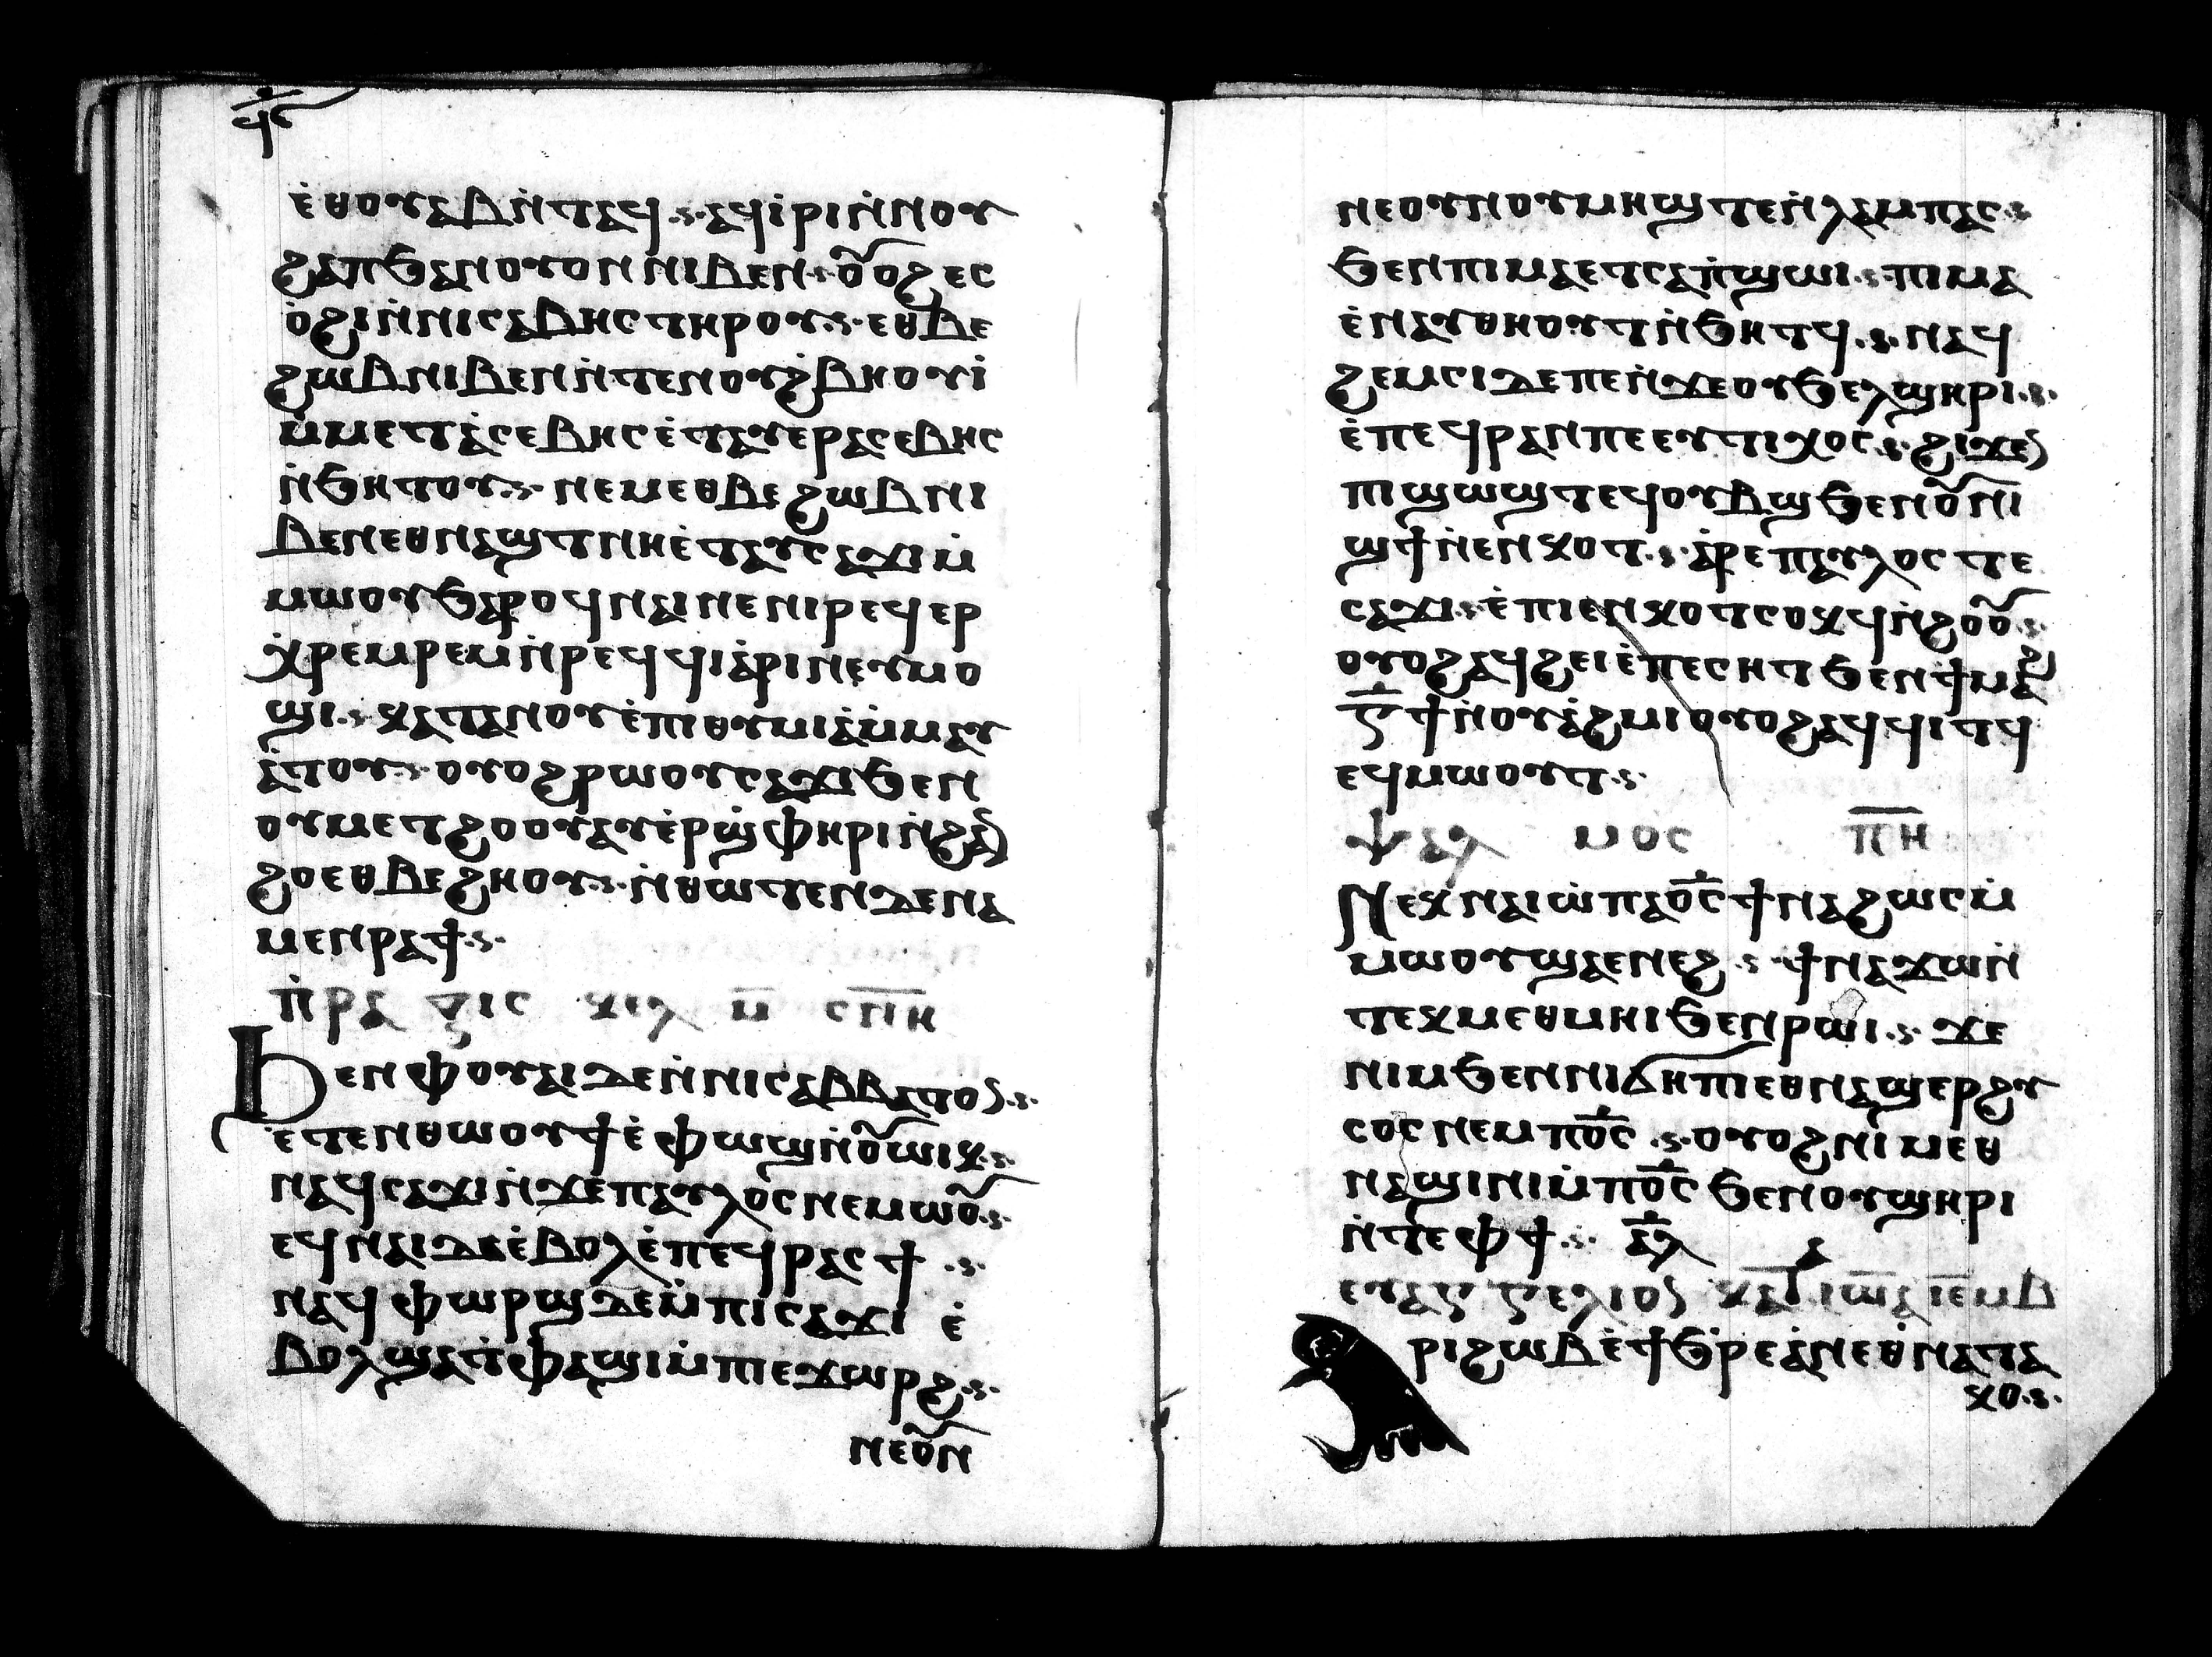 ϥⲋ
ⲉ̇ⲑⲟⲩⲁⲃⲛ̇ⲧⲁϥ ⲁϥⲓ̇ⲣⲓⲛ̇ⲛⲟⲩ
ϩⲁⲡϧⲁⲛⲟⲩⲟⲛⲛⲓⲃⲉⲛ ⲟ̅ⲟϩⲉⲥ
ⲟ̇ϩⲓⲛ̇ⲛⲓⲥⲁⲃⲏⲥⲧⲏⲣⲟⲩ ⲉⲑⲃⲉ
ϩⲱⲃⲛⲓⲃⲉⲛⲛ̇ⲧⲉⲛⲟⲩϩ̇ⲃⲏⲟⲩⲓ̇
ⲙ̇ⲙⲉⲧⲁ̇ⲥⲉⲃⲏⲥⲉ̇ⲧⲁⲩⲉⲣⲁⲥⲉⲃⲏⲥ
ⲛ̇ϧⲏⲧⲟⲩ ⲛⲉⲙⲉⲑⲃⲉϩⲱⲃⲛⲓ
ⲃⲉⲛⲉⲑⲛⲁϣⲧⲛⲏⲉ̇ⲧⲁⲩⲥⲁϫⲓⲙ̇
ⲙⲱⲟⲩϧⲁⲣⲟϥⲛⲁⲓⲛⲉⲛⲓⲣⲉϥⲉⲣ
ⲭ̇ⲣⲉⲙⲣⲉⲙⲛ̇ⲣⲉϥϥⲓⲁ̇ⲣⲓⲛⲉⲩⲙⲟ
ϣⲓ ⲕⲁⲧⲁⲛⲟⲩⲉ̇ⲡⲓⲑⲩⲙⲓⲁ̇ⲙ̇ⲙⲁⲩ
ⲁ̇ⲧⲟⲩ ⲟⲩⲟϩⲣⲱⲟⲩⲥⲁϫⲓϧⲉⲛ
ⲟⲩⲙⲉⲧϩⲟⲟⲩⲁⲩⲉ̇ⲣϣ̇ⲫⲏⲣⲓⲛ̇ϩⲁ̅
ϩⲟⲉⲑⲃⲉϩⲏⲟⲩ ⲛ̇ⲑⲱⲧⲉⲛⲇⲉⲛⲁ
ⲙⲉⲛⲣⲁϯ
ⲡ̇ⲣⲁⲝⲓⲥ ⲕⲉⲗ ⲙ̅ ⲥⲡ̅ⲏ̅
Ϧⲉⲛⲫⲟⲩⲁⲓⲇⲉⲛ̇ⲛⲓⲥⲁⲃⲃⲁⲧⲟ̅
ⲉ̇ⲧⲉⲛⲑⲱⲟⲩϯⲉ̇ⲫⲱϣⲛ̇ⲟ̅ⲱⲓⲕ
ⲛⲁϥⲥⲁϫⲓⲛ̇ϫⲉⲡⲁⲩⲗⲟⲥⲛⲉⲙⲱⲟ̅
ⲉϥⲛⲁⲓⲇⲉⲉ̇ⲃⲟⲗⲉ̇ⲡⲉϥⲣⲁⲥϯ
ⲛⲁϥⲫⲱⲣϣⲇⲉⲙ̇ⲡⲓⲥⲁϫⲓ ⲉ̇
ⲃⲟⲗϣⲁⲧ̇ⲫⲁϣⲓⲙ̇ⲡⲓⲉϫⲱⲣϩ
ⲛⲉⲟ̅ⲛ
ⲛⲉⲟⲩⲛⲟⲩⲙⲏϣⲧⲉⲛ̇ⲗⲁⲙⲡⲁⲥ
ϧⲉⲛⲡⲓⲙⲁⲉⲧⲥⲁⲡ̇ϣⲱⲓ ⲡⲓⲙⲁ
ⲉ̇ⲛⲁⲩⲑⲏⲟⲩⲧⲛ̇ϧⲏⲧϥ ⲛⲁϥ
ϩⲉⲙⲥⲓⲇⲉⲡⲉⲛ̇ϫⲉⲟⲩϧⲉⲗϣⲏⲣⲓ
ⲉ̇ⲡⲉϥⲣⲁⲛⲡⲉⲉⲩⲧⲓⲭⲟⲥ ϩⲓϫⲉ̅
ⲡⲓϣⲱϣⲧⲉϥⲟⲩⲃϣϧⲉⲛⲟ̅ⲛⲓ
ϣϯⲛ̇ⲉⲛⲕⲟⲧ ⲁ̇ⲣⲉⲡⲁⲩⲗⲟⲥⲧⲉ
ⲥⲁϫⲓ ⲉ̇ⲡⲓⲉⲛⲕⲟⲧⲥⲟⲕϥⲛ̇ϩⲟⲟ̅
ⲟⲩⲟϩⲁϥϩⲉⲓⲉ̇ⲡⲉⲥⲏⲧϧⲉⲛϯⲙⲁϩ
ⲅ̅ϯⲛ̇ⲟⲩⲁ̇ϩⲙⲓⲟⲩⲟϩⲁϥϥⲓⲧϥ
ⲉϥⲙⲱⲟⲩⲧ
ⲯⲁⲗ ⲙⲟⲥ ⲡ̅ⲏ̅
Ⲛⲉⲕⲛⲁⲓⲱ̇ⲡⲁⲟ̅ⲥ̅ϯⲛⲁϩⲱⲥⲙ̇
ⲙⲱⲟⲩϣⲁⲉⲛⲉϩ ϯⲛⲁϫⲱⲛ̇
ⲧⲉⲕⲙⲉⲑⲙⲏⲓϧⲉⲛⲣⲱⲓ ϫⲉ
ⲛⲓⲙϧⲉⲛⲛⲓϭⲏⲡⲓⲉⲑⲛⲁϣⲉⲣϩⲩ
ⲥⲟⲥⲛⲉⲙⲡⲟ̅ⲥ̅ ⲟⲩⲟϩⲛⲓⲙⲉⲑ
ⲛⲁϣⲓⲛⲓⲙ̇ⲡⲟ̅ⲥ̅ϧⲉⲛⲟⲩϣⲏⲣⲓ
ⲛ̇ⲧⲉⲫϯ ⲁ̅ⲗ̅
ⲉⲩⲁⲅⲅⲉⲗⲓⲟ̅ ⲕⲁⲧⲁ ⲓⲱ̅ⲁ ⲓⲉ̅ⲙⲃ
Ⲁⲣⲓϩⲱⲃⲉ̇ϯϧ̇ⲣⲉⲁ̇ⲛⲉⲑ̇ⲛⲁⲧⲁ
ⲕⲟ